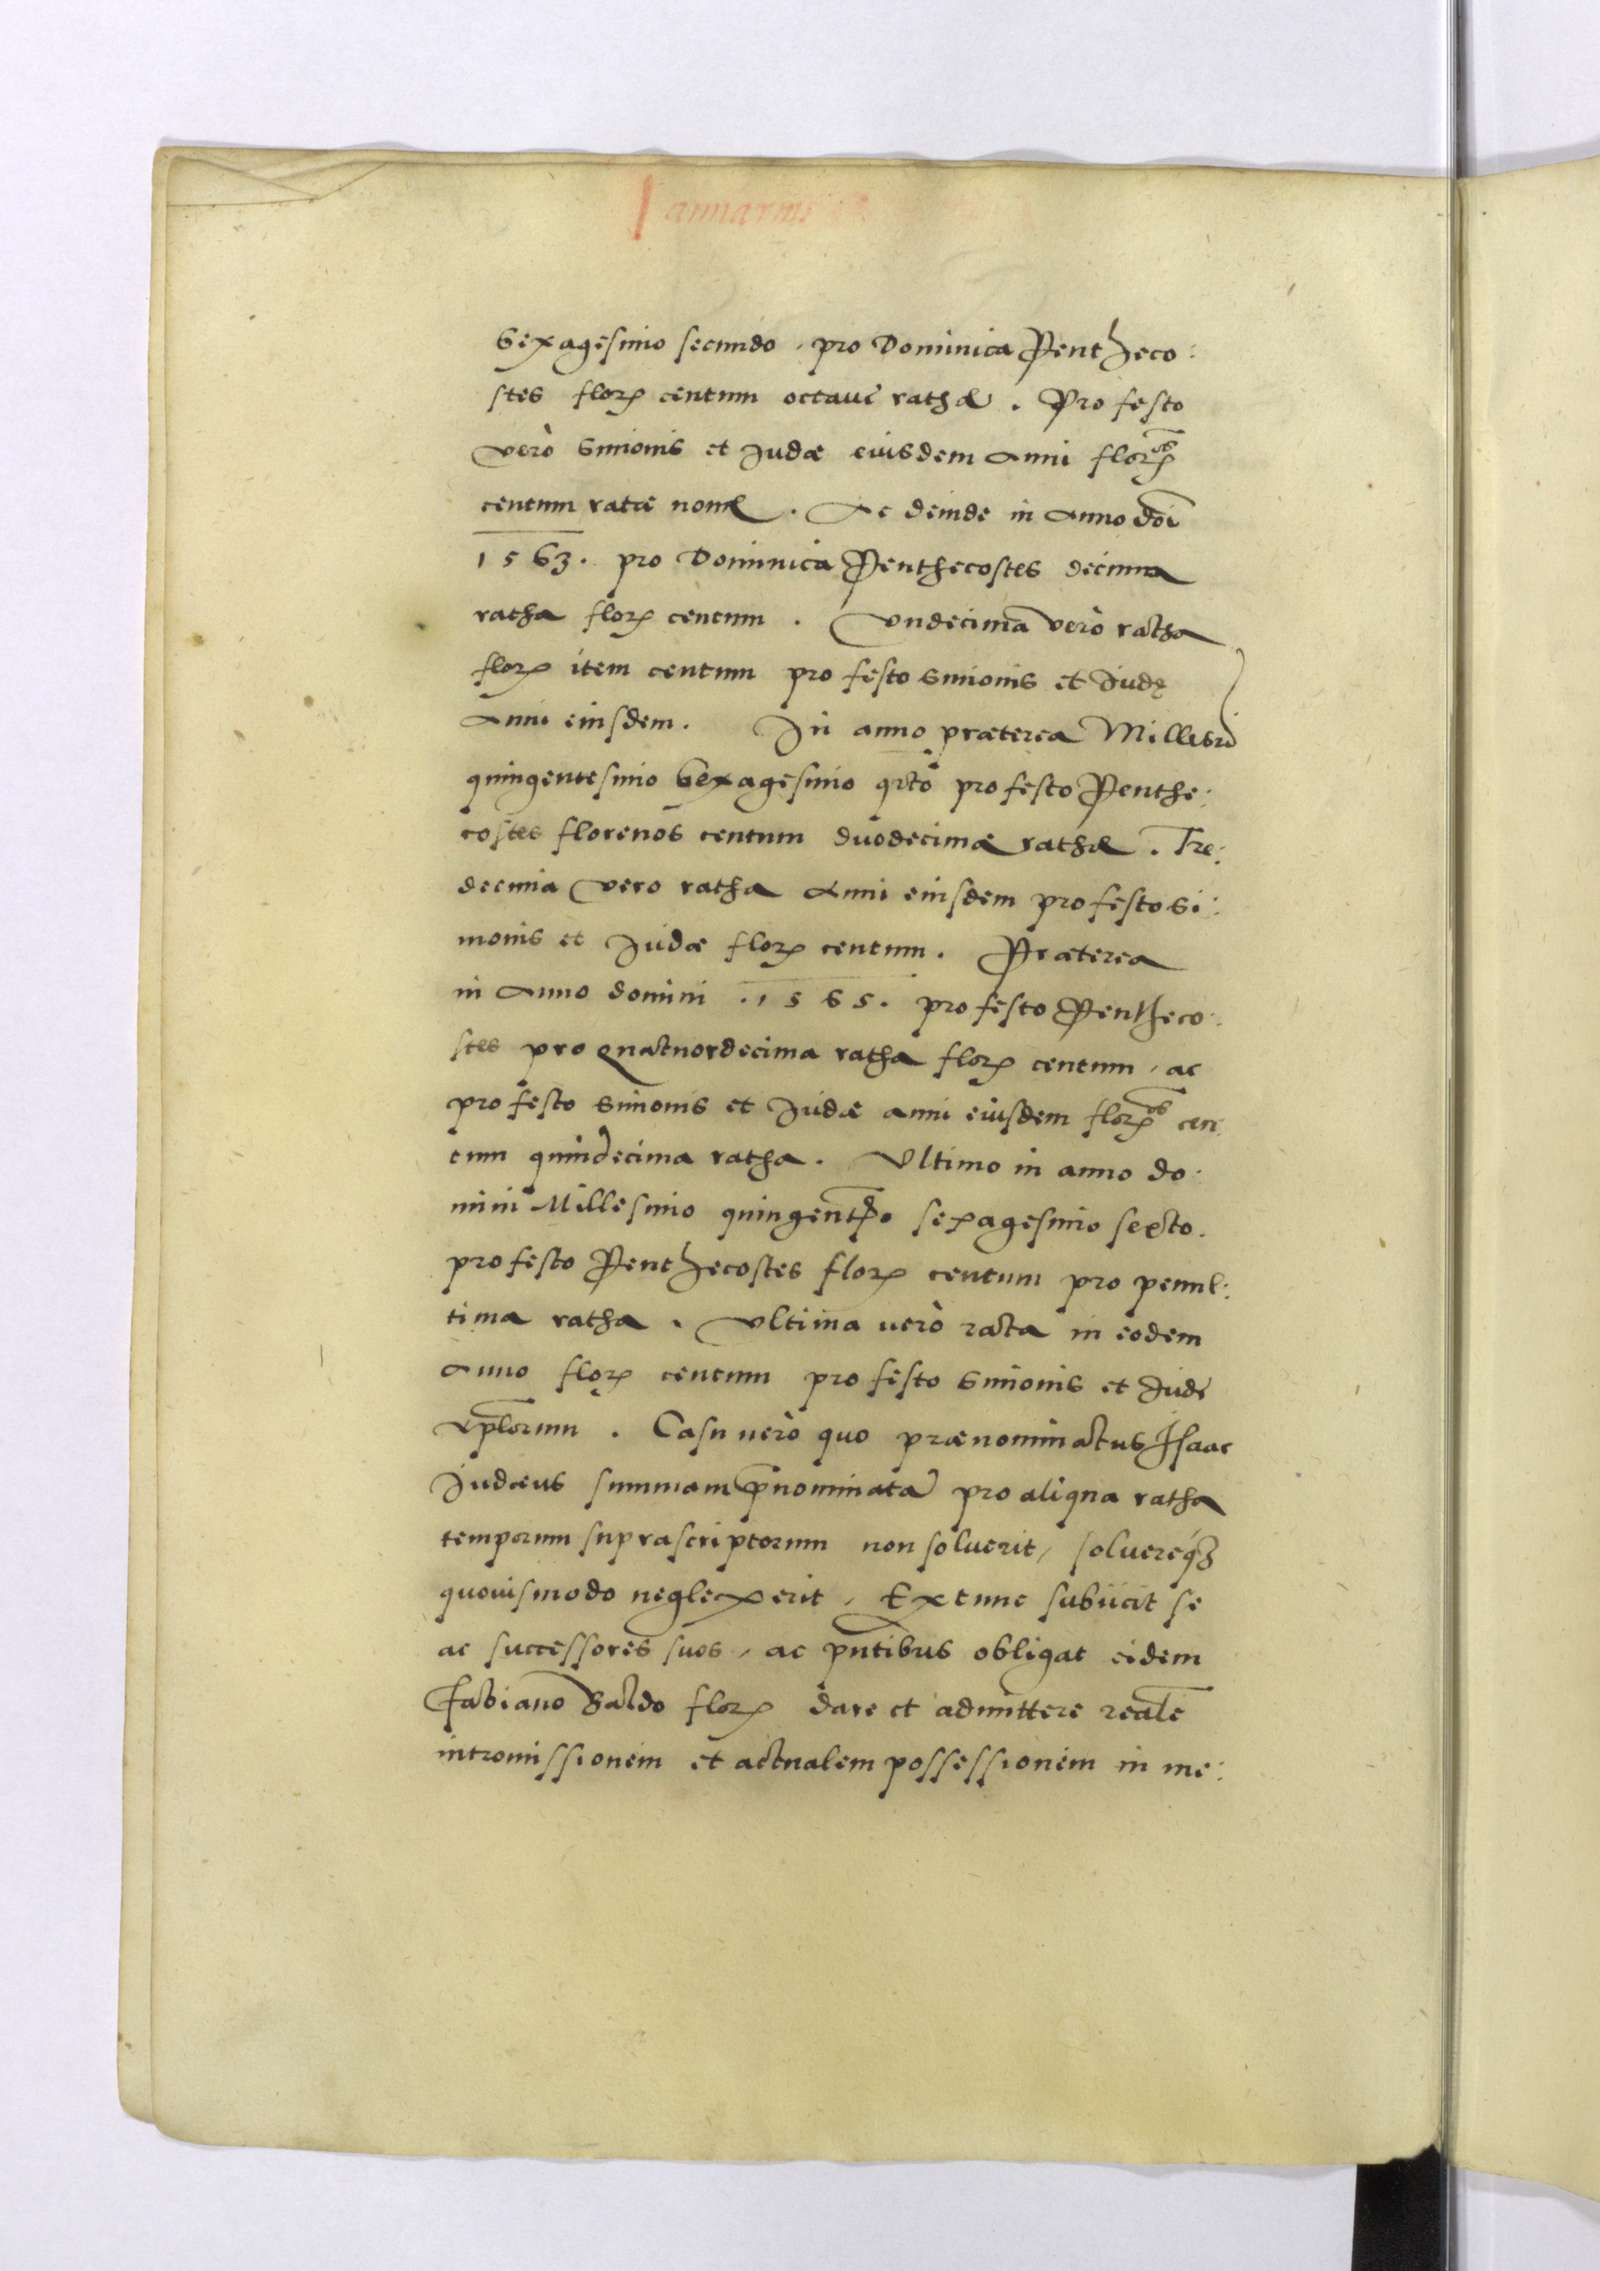 Januarius
Sexagesimo secundo, pro Dominica Pentheco:
stes flor: centum octavę rathæ. Pro festo
verò Simonis et Judæ eiusdem Anni flor:os
centum ratæ nonæ. Ac deinde in Anno dōi
1563. pro Dominica Penthecostes decima
ratha flor: centum. Vndecima verò ratha
flor: item centum pro festo Simonis et Judę
Anni eiusdem. In anno præterea Millesīo
quingentesimo Sexagesimo qrto pro festo Penthe:
costes florenos centum duodecimæ rathæ. Tre:
decima vero ratha Anni eiusdem pro festo Si:
monis et Judæ flor: centum. Præterea
in Anno domini .1565. pro festo Pentheco:
stes pro quatuordecima ratha flor: centum, ac
pro festo Simonis et Judæ anni eiusdem flor:os cen:
tum quindecima ratha. Vltimo in anno do:
mini Millesimo quingentmo sexagesimo sexto.
pro festo Penthecostes flor: centum pro penul:
tima ratha. Vltima verò rata in eodem
Anno flor: centum pro festo Simonis et Judę
Aplorum. Casu verò quo prænominatus Isaac
Judæus summam p̄nominatā pro aliqua ratha
temporum suprascriptorum non solverit, solvereq3
quovismodo neglexerit, Extunc subiicit se
ac successores suos, ac pn̄tibus obligat eidem
Fabiano Baldo flor: dare et admittere realē
intromissionem et actualem possessionem in me: